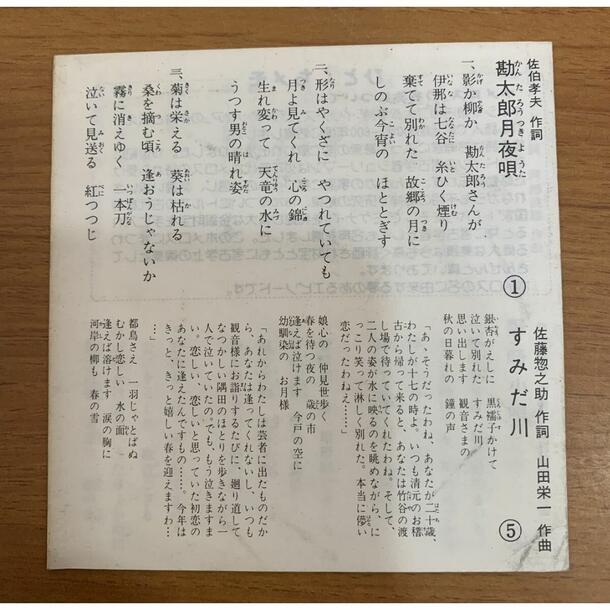 佐伯孝夫 作詞
勘太郎月夜唄 ①
一、影か柳か 勘太郎さんが
伊那は七谷 糸ひく煙り
棄てて別れた 故郷の月に
しのぶ今宵の ほととぎす
二、形はやくざに やつれていても
月よ見てくれ 心の錦
生れ変って 天竜の水に
うつす男の晴れ姿
三、菊は栄える 葵は枯れる
桑を摘む頃 逢おうじゃないか
霧に消えゆく 一本刀
泣いて見送る 紅つつじ
佐藤惣之助 作詞 山田栄一 作曲
すみだ川 ⑤
銀杏がえしに 黒襦子かけて
泣いて別れた すみだ川
思い出します 観音さまの
秋の日暮れの 鐘の声
「あ、そうだったわね、あなたが二十歳、
わたしが十七の時よ。いつも清元のお稽
古から帰って来ると、あなたは竹谷の渡
し場で待っていてくれたわね。そして、
二人の姿が水に映るのを眺めながら、に
っこり笑って淋しく別れた。本当に儚い
恋だったわねえ……」
娘心の 仲見世歩く
春を待つ夜の 歳の市
逢えば泣けます 今戸の空に
幼馴染の お月様
「あれからわたしは芸者に出たものだか
ら、あなたは逢ってくれないし、いつも
観音様にお詣りするたびに、廻り道して
なつかしい隅田のほとりを歩きながら一
人で泣いていたの。でも、もう泣きますま
い。恋しい、恋しいと思っていた初恋の
あなたに逢えたんですもの……。今年は
きっと、きっと嬉しい春を迎えますわ…
…」
都鳥さえ 一羽じゃとばぬ
むかし恋しい 水の面
逢えば溶けます 涙の胸に
河岸の柳も 春の雪